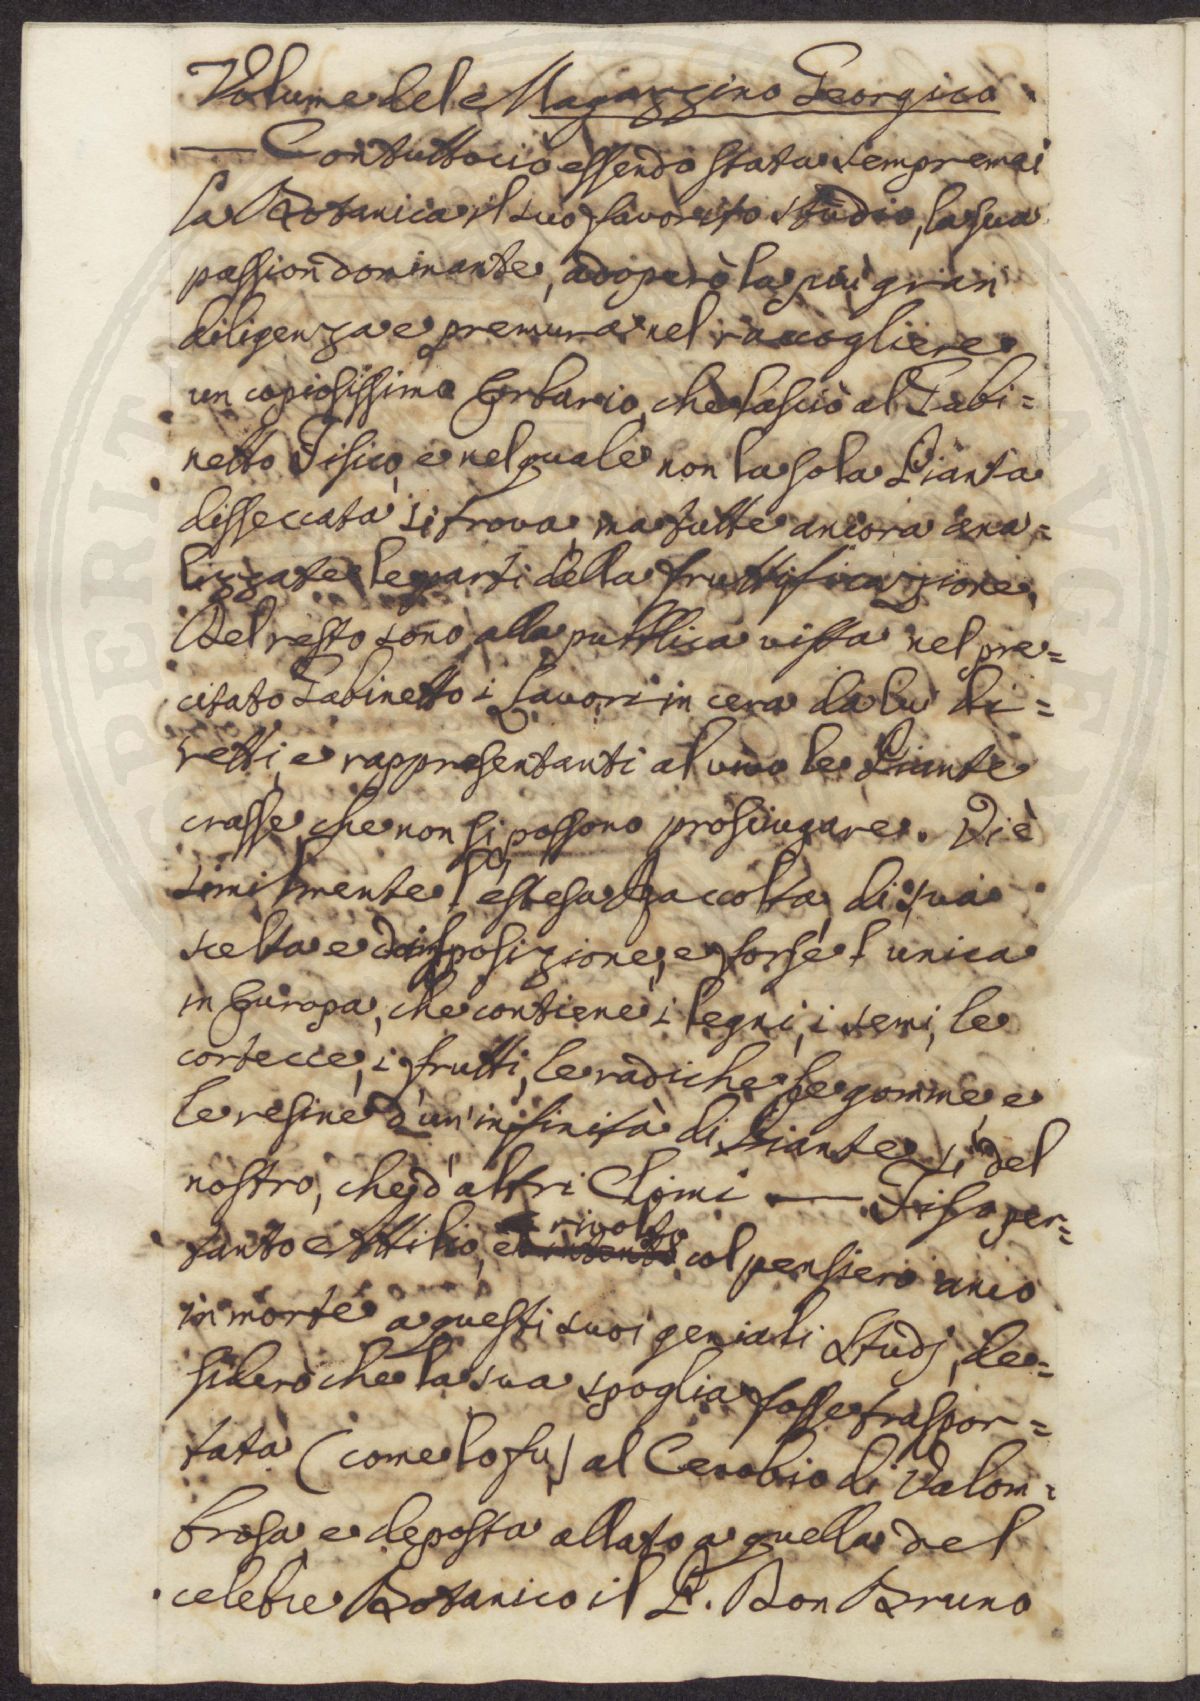 Volume del Magazzino Georgico
— Contuttociò essendo stata sempremai
la Botanica il suo favorito studio, la sua
passion dominante, adoperò la più gran
diligenza e premura nel raccogliere
un copiosissimo Erbario, che lasciò al Gabi=
netto Fisico, e nel quale non la sola Pianta
disseccata si trova, ma tutte ancora ana=
lizzate le parti della fruttificazione.
Del resto sono alla pubblica vista nel pre=
citato Gabinetto i lavori in cera da lui di=
retti, e rappresentanti al vivo le Piante
crasse, che non si possono prosciugare. Vi è
similmente l'estesa Raccolta, di sua
scelta e disposizione, e forse l'unica
in Europa, che contiene i legni, i semi, le
cortecce, i frutti, le radiche le gomme, e
le resine d'un'infinità di Piante sì del
nostro, che d'altri Climi — Fisso per=
tanto Attilio, e rivolto col pensiero anco
in morte a questi suoi geniali Studj, de=
siderò che la sua spoglia fosse traspor=
tata (come lo fu) al Cenobio di Valom=
brosa, e deposta allato a quella del
celebre Botanico il P. Don Bruno